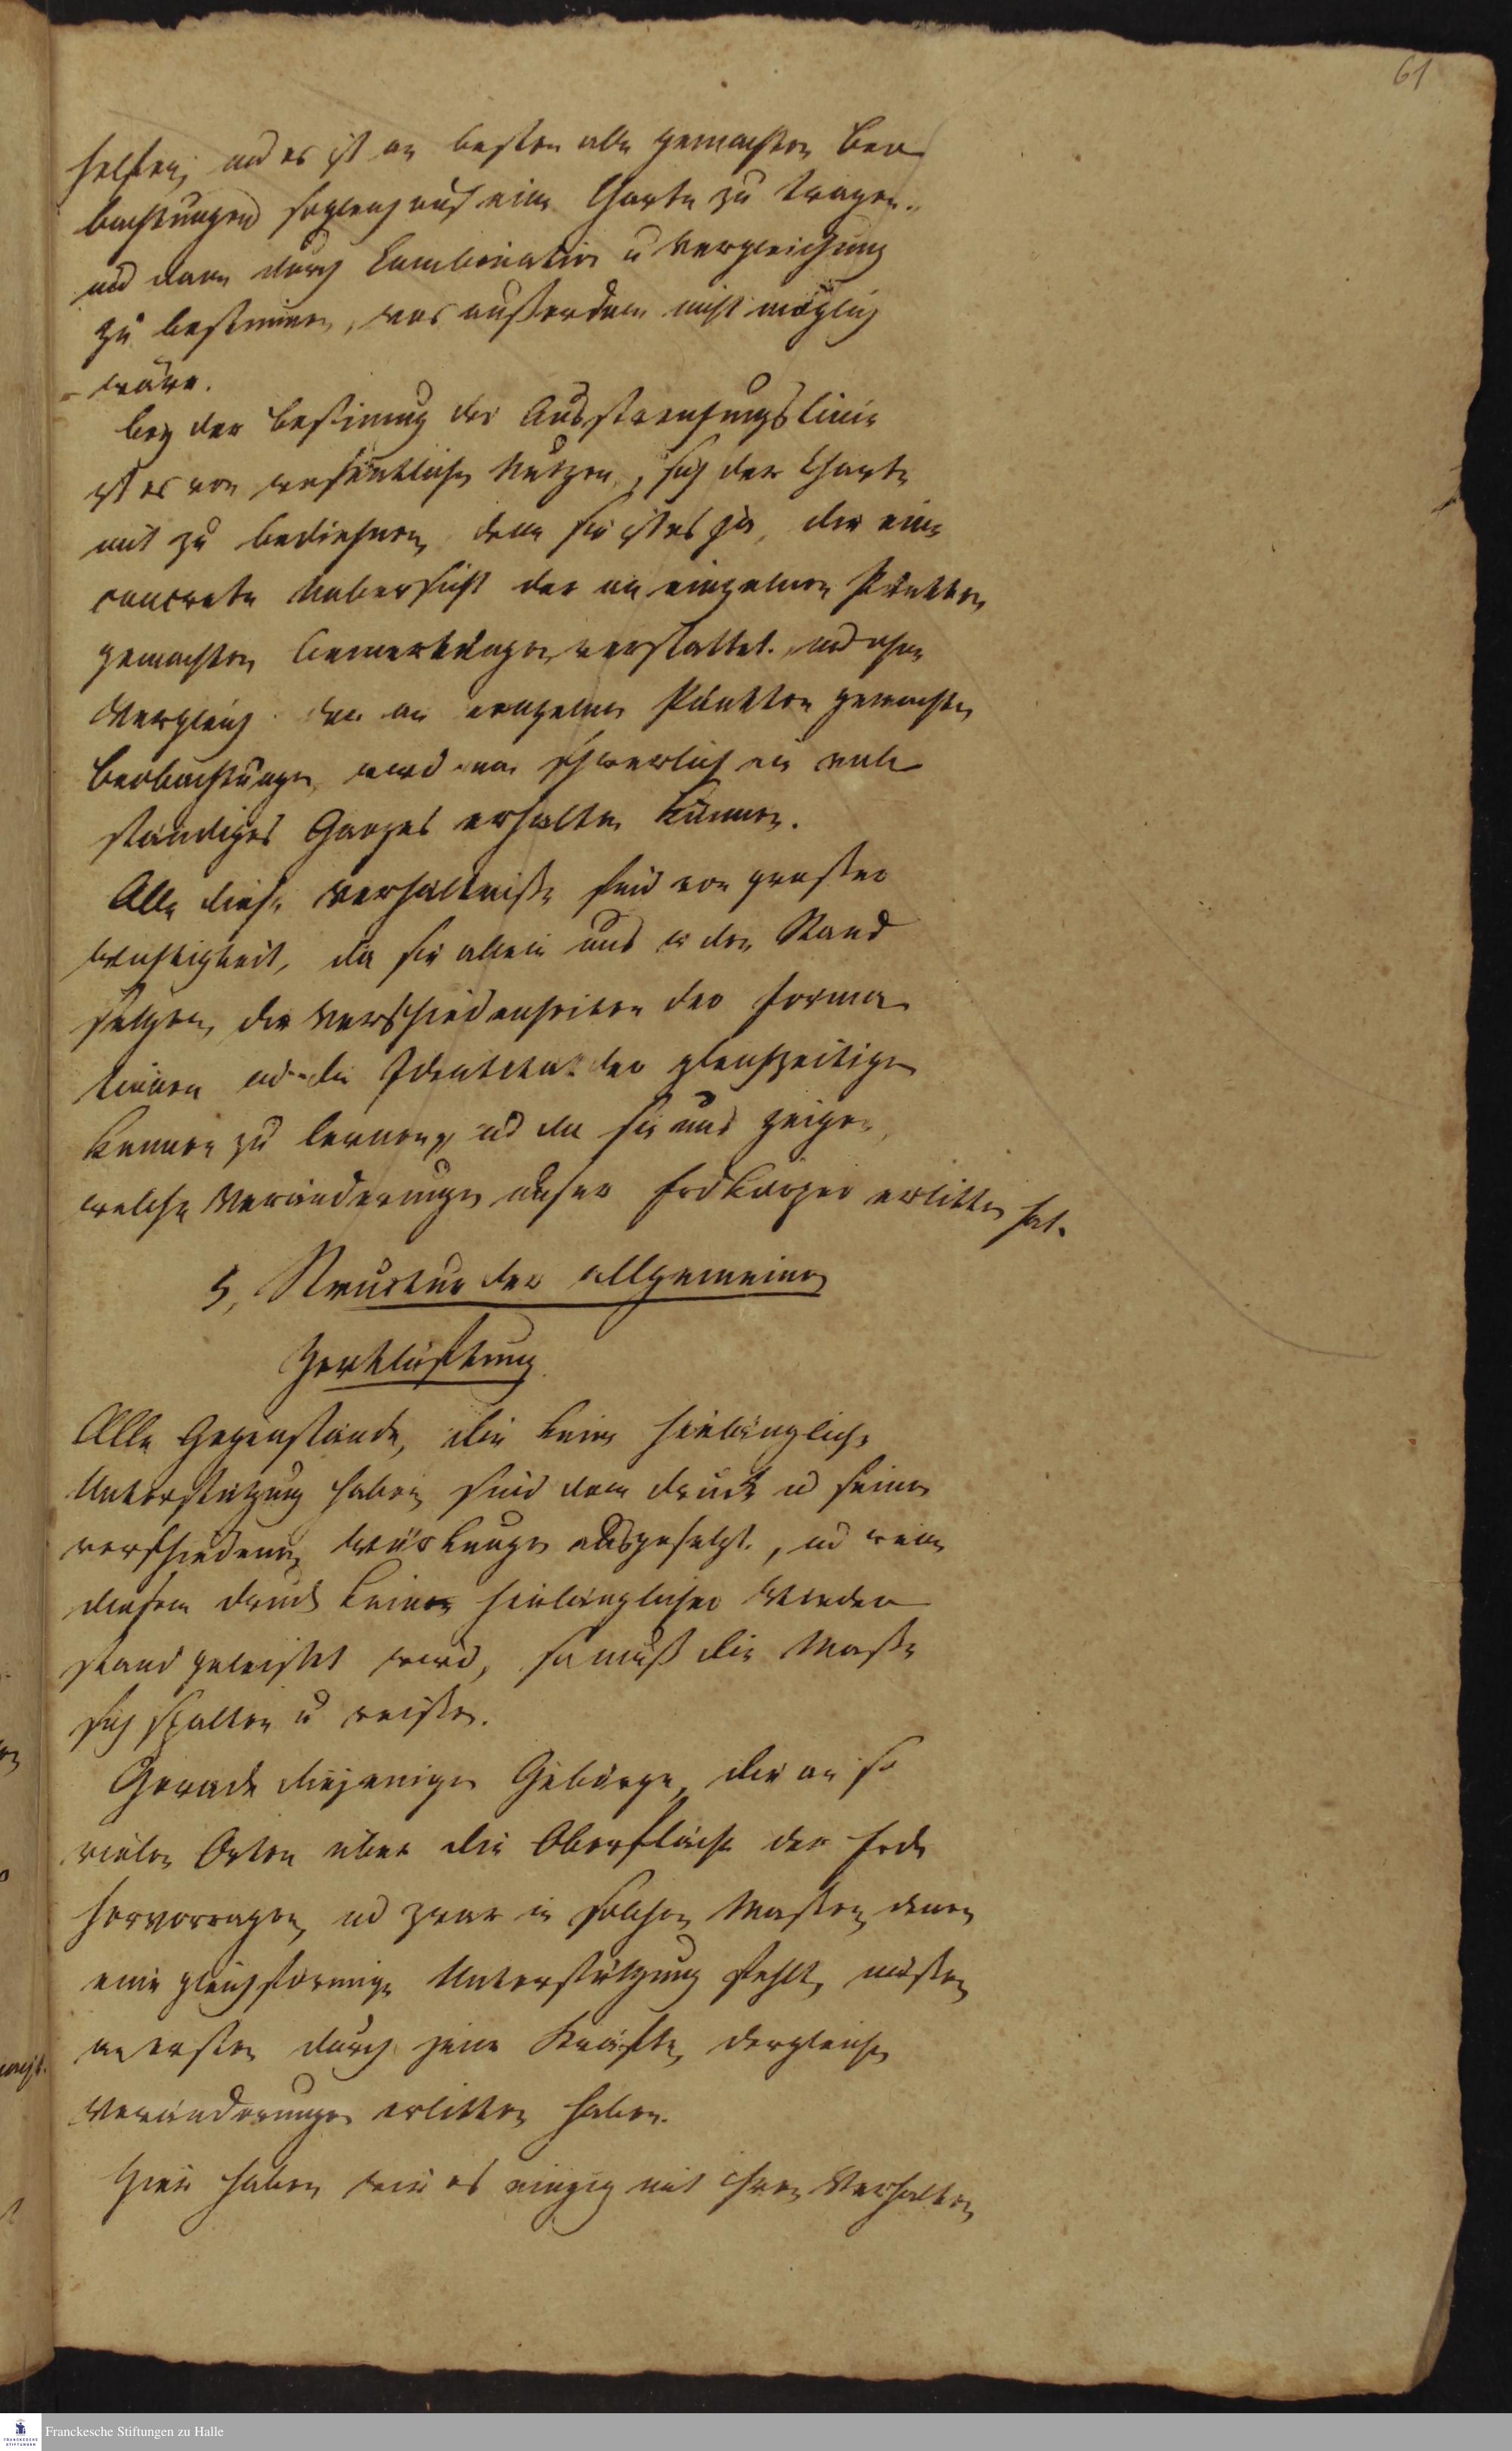 61
helfen, und es ist am besten alle gemachten Beo
bachtungen sogleich auf eine Charte zu tragen.
und dann durch Combination u Vergleichung
zu bestimen, was außerdem nicht möglich
wäre.
Bey der Bestimung der Ausstreichungslinie
ist es von wesentlichen Nutzen, sich der Charte
mit zu bedienen, denn sie ist es ja, die eine
concrete Uebersicht der an einzelnen Punkten
gemachten Bemerkungen verstattet. und ohne
Vergleich der an einzelnen Punkten gemachten
Beobachtungen, wird man schwerlich ein voll
ständiges Ganzes erhalten können.
Alle diese Verhältniße sind von großer
Wichtigkeit, da sie allein uns in den Stand
setzen, die Verschiedenheiten der Forma
tionen und die Identitat der gleichzeitigen
kennen zu lernen, und da sie uns zeigen,
welche Veränderungen unser Erdkörper erlitten hat.
5, Structur der allgemeinen
Zerklüftung.
Alle Gegenstände, die keine hinlängliche
Unterstützung haben, sind dem Druck u seinen
verschiedenen Würkungen ausgesetzt, und wenn
diesem Druck keiner hinlänglicher Wieder
stand geleistet wird, so muß die Maße
sich spalten u reißen.
Gerade diejenigen Gebürge, die an so
vielen Orten über die Oberfläche der Erde
hervorragen, und zwar in solchen Maßen, denen
eine gleichförmige Unterstützung fehlt, müßen
am ersten durch jene Kräfte, dergleichen
Veränderungen erlitten haben.
Hier haben wir es einzig mit ihren Verhalten
Franckesche Stiftungen zu Halle